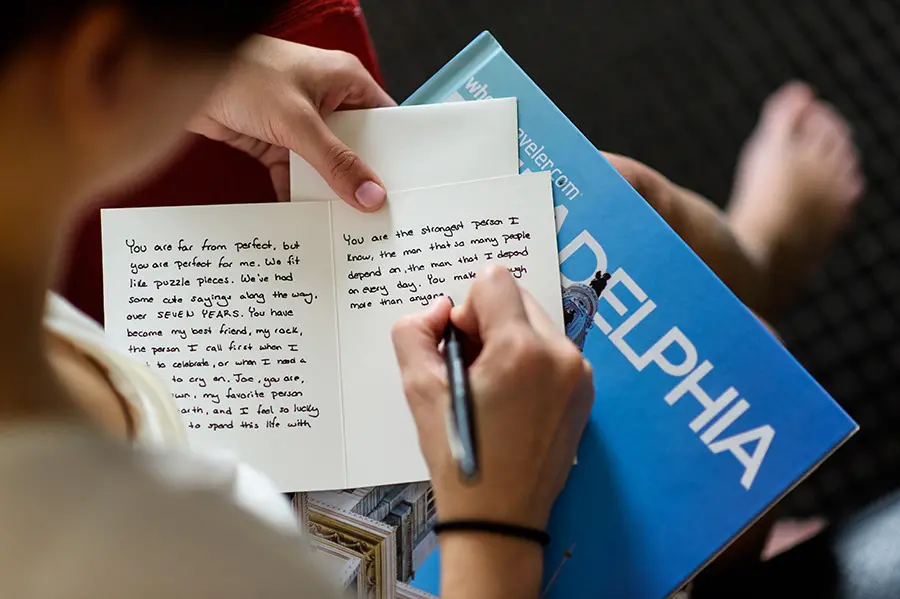 You are far from perfect, but
you are perfect for me. We fit
like puzzle pieces. We've had
some cute sayings along the way,
over SEVEN YEARS. You have
become my best friend, my rock,
the person I call first when I
to celebrate, or when I need a
to cry on. Joe, you are,
my favorite person
and I feel so lucky
to spend this life with
You are the strongest person I
know, the man that so many people
depend on, the man that I depend
on every day. You make
more than anyone
DELPHIA